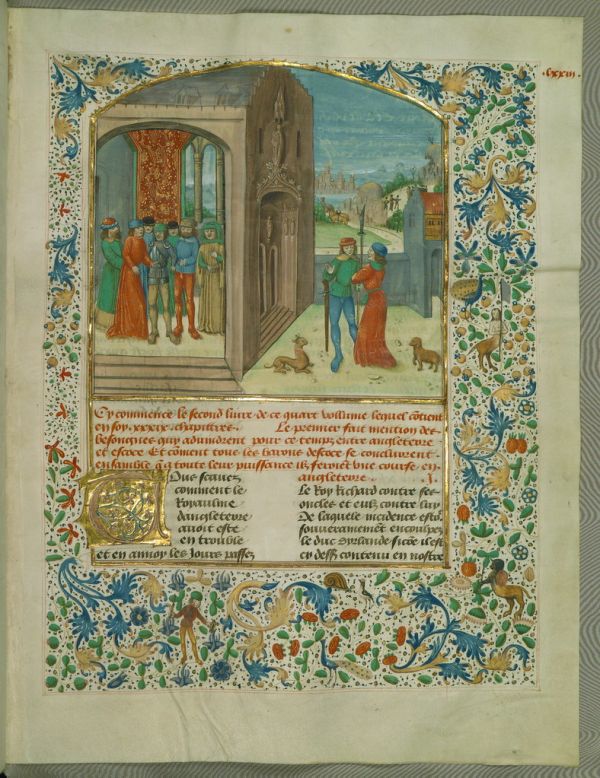 .lxxiii.
Cy commence le second livre de ce quart vollume lequel cōtient
en soy .xxxix. chapitres. Le premier fait mention des
besongnes quy advindrent pour ce temps entre angleterre
et escoce Et cōment tous les barons descoce se conclurent
ensamble q̄ a toute leur puissance ilz feroient une course en
angleterre . J.
Vous scavez
comment le
Royaulme
dangleterre
avoit este
en trouble
et en annoy les jours passez
Le Roy Richard contre ses
oncles et eulz contre luy
De laquele incidence estoit
souverainement encoulpez
le duc dyrlande sicōe il est
cy dess9 contenu en nostre